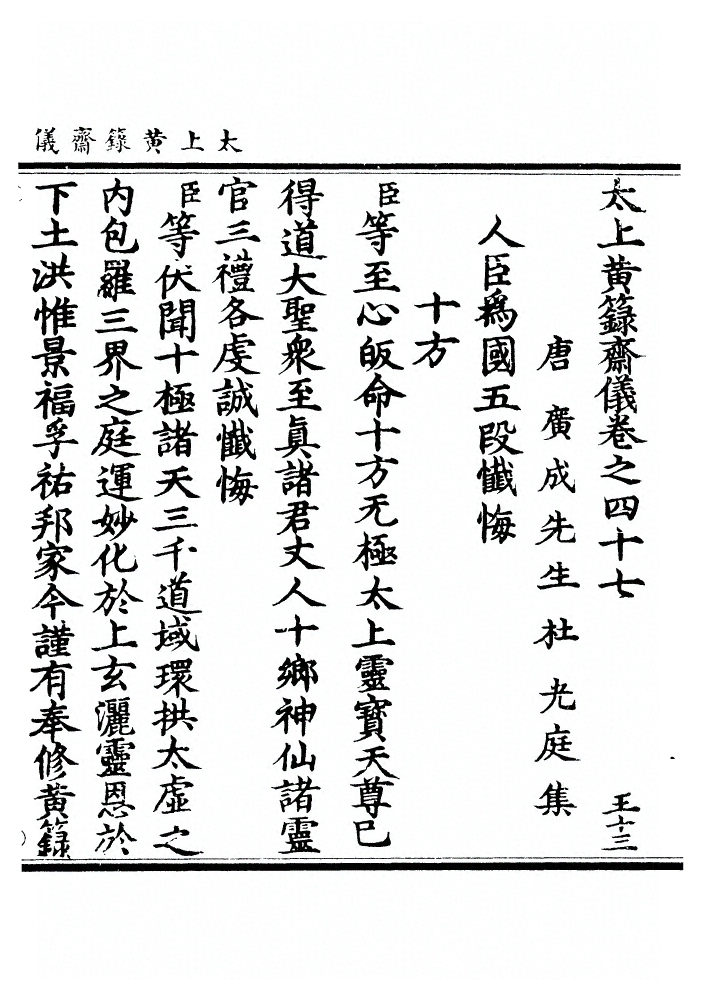 太上黄籙齋儀
太上黄籙齋儀卷之四十七 王十三
唐廣成先生杜光庭集
人臣爲國五段懺悔
十方
臣等至心皈命十方无極太上靈寳天尊巳
得道大聖衆至眞諸君丈人十鄉神仙諸靈
官三禮各虔誠懺悔
臣等伏聞十極諸天三千道域環拱太虚之
内包羅三界之庭運妙化於上玄灑靈恩於
下土洪惟景福孚祐邦家今謹有奉修黄籙